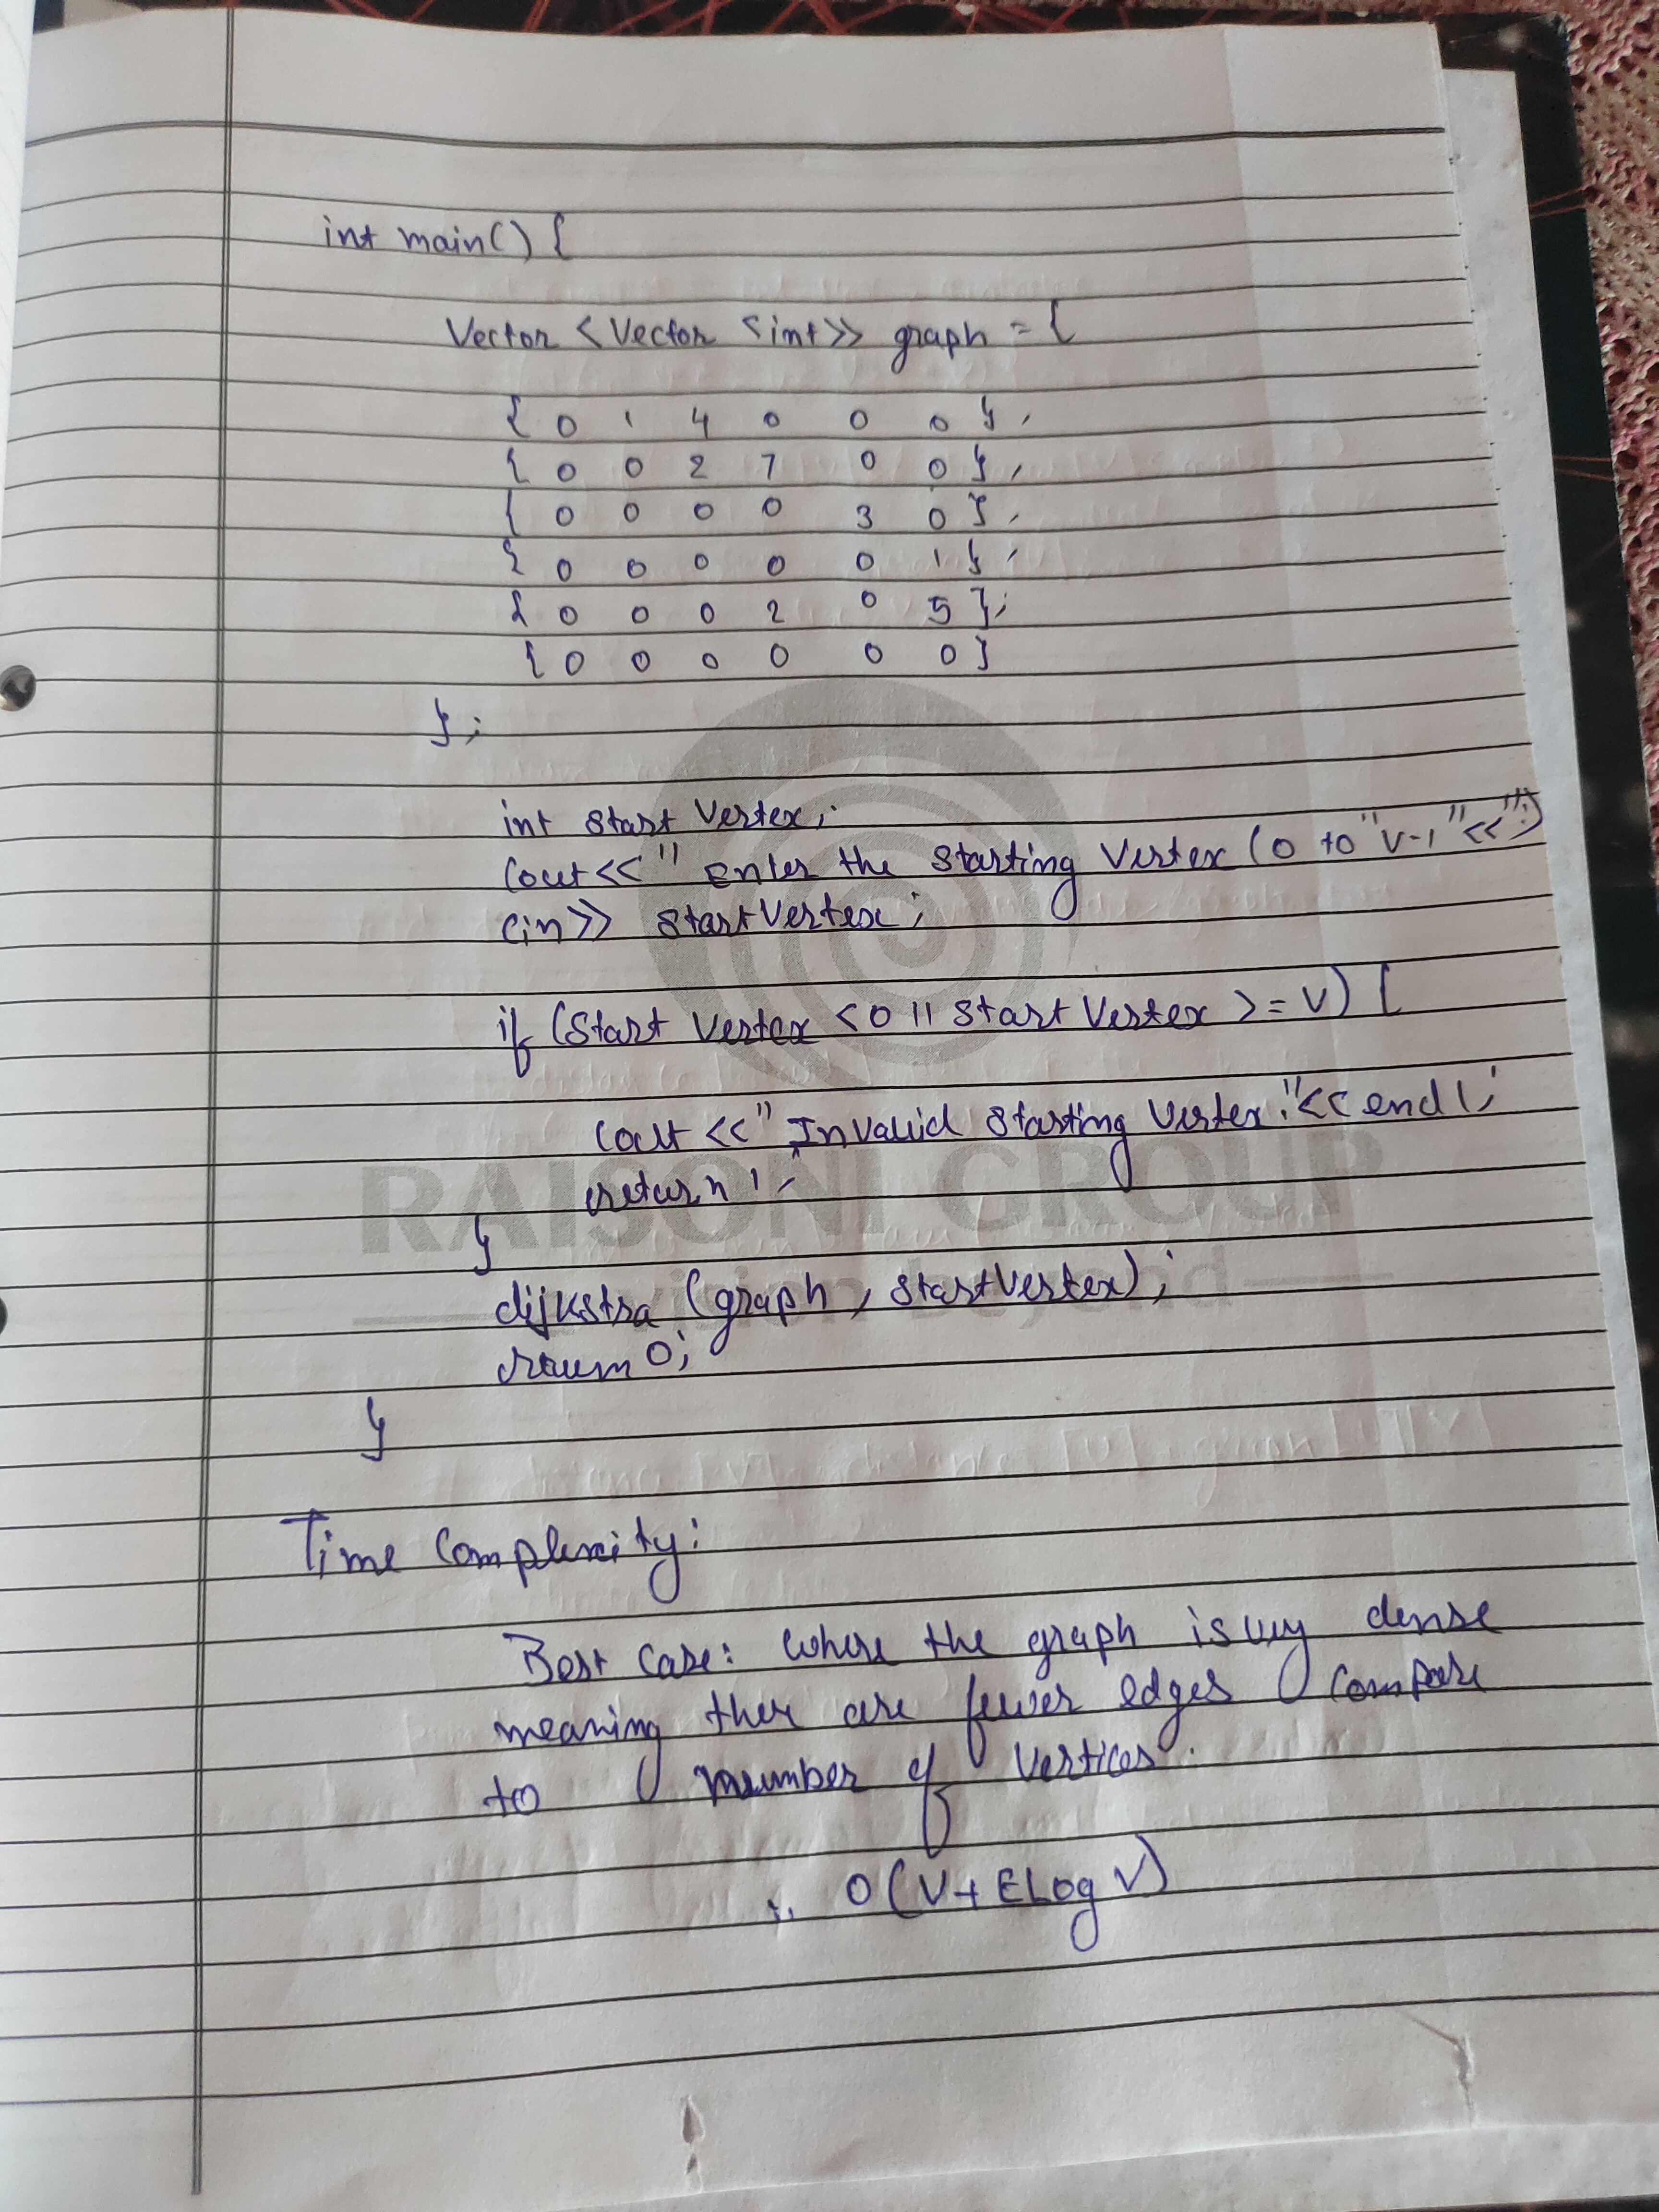 int main() {
Vector <Vector <int>> graph = {
{ 0 1 4 0 0 0 } ,
{ 0 0 2 7 0 0 } ,
{ 0 0 0 0 3 0 } ,
{ 0 0 0 0 0 1 } ,
{ 0 0 0 2 0 5 } ;
{ 0 0 0 0 0 0 }
} ;
int start Vertex ;
Cout << " Enter the Starting Vertex ( 0 to " V-1 " << " ; )
Cin >> StartVertex ;
if (Start Vertex < 0 || Start Vertex > = V) {
Cout << " Invalid Starting Vertex . " << endl ;
return 1 ;
}
RAISONI GROUP
a vision beyond
dijkstra (graph , StartVertex) ;
return 0 ;
}
Time Complexity :
Best Case : Where the graph is very dense
meaning ther are fewer edges compare
to number of Vertices .
∴ O ( V + E Log V )